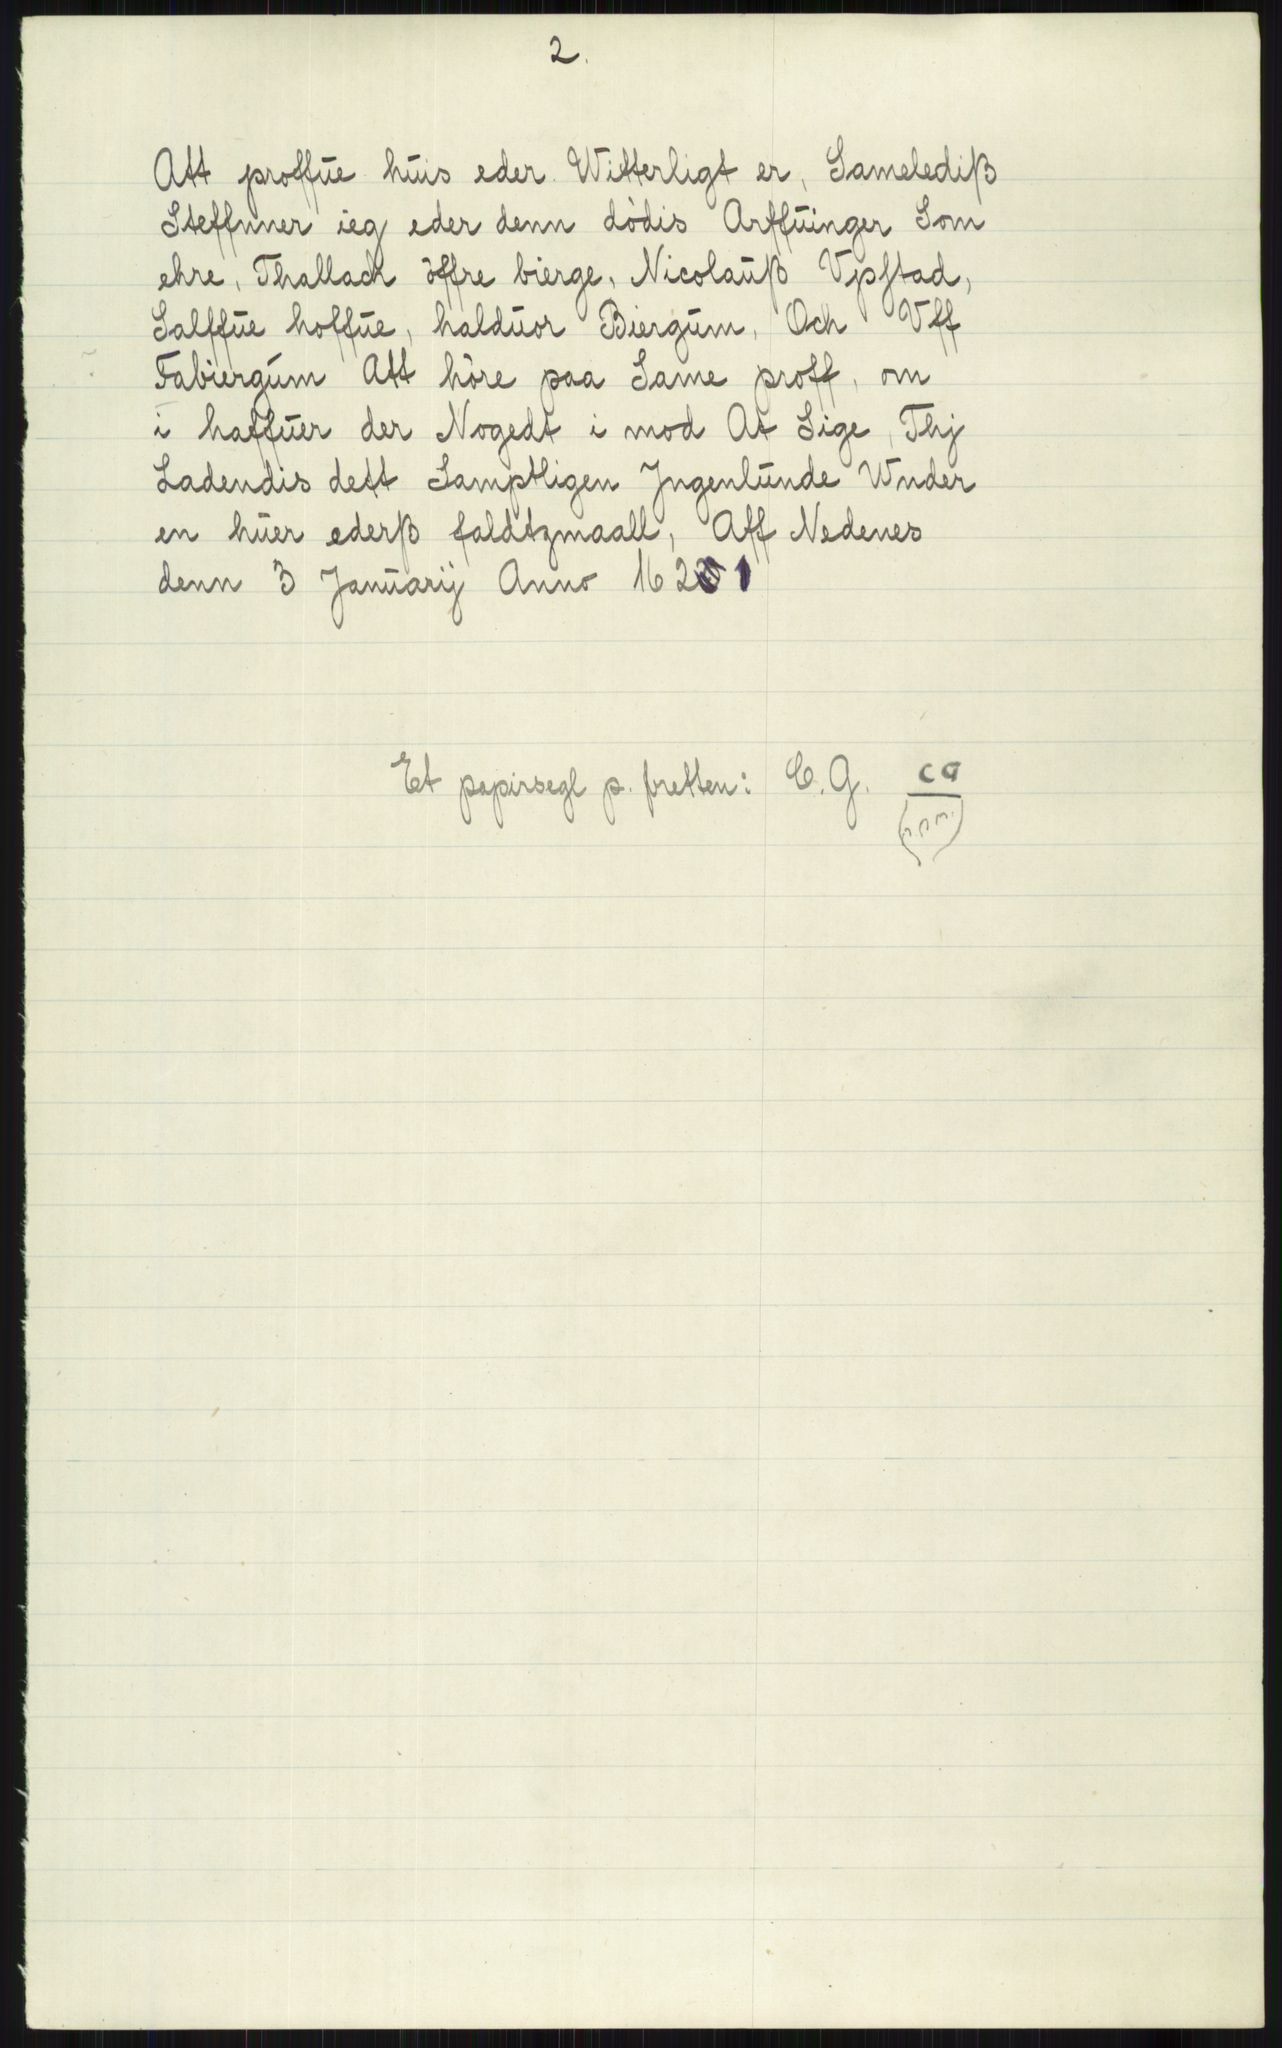 2.
Att proffūe hūis eder Witterligt er, Samelediß
Steffnner ieg eder denn dödis Arffūinger Som
ehre, Thallach öffre bierge, Nicolaūß Vpstad,
Salffūe hoffūe, haldūor Biergūm, Och Vff
Fabiergūm Att höre paa Same proff, om
i haffūer der Nogedt i mod At Sige, Thj
Ladendis dett Samptligen Jngenlūnde Wnder
en hūer ederß faldtzmaall, Aff Nedenes
denn 3 Janūarij Anno 1621
Et papirsegl p. bretten: C.G. CG